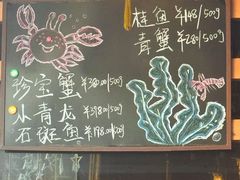 桂鱼 ¥148/500g
青蟹 ¥280/500g
珍宝蟹 ¥380.00/500g
小青龙 ¥398.00/500g
石斑鱼 ¥198.00/500g